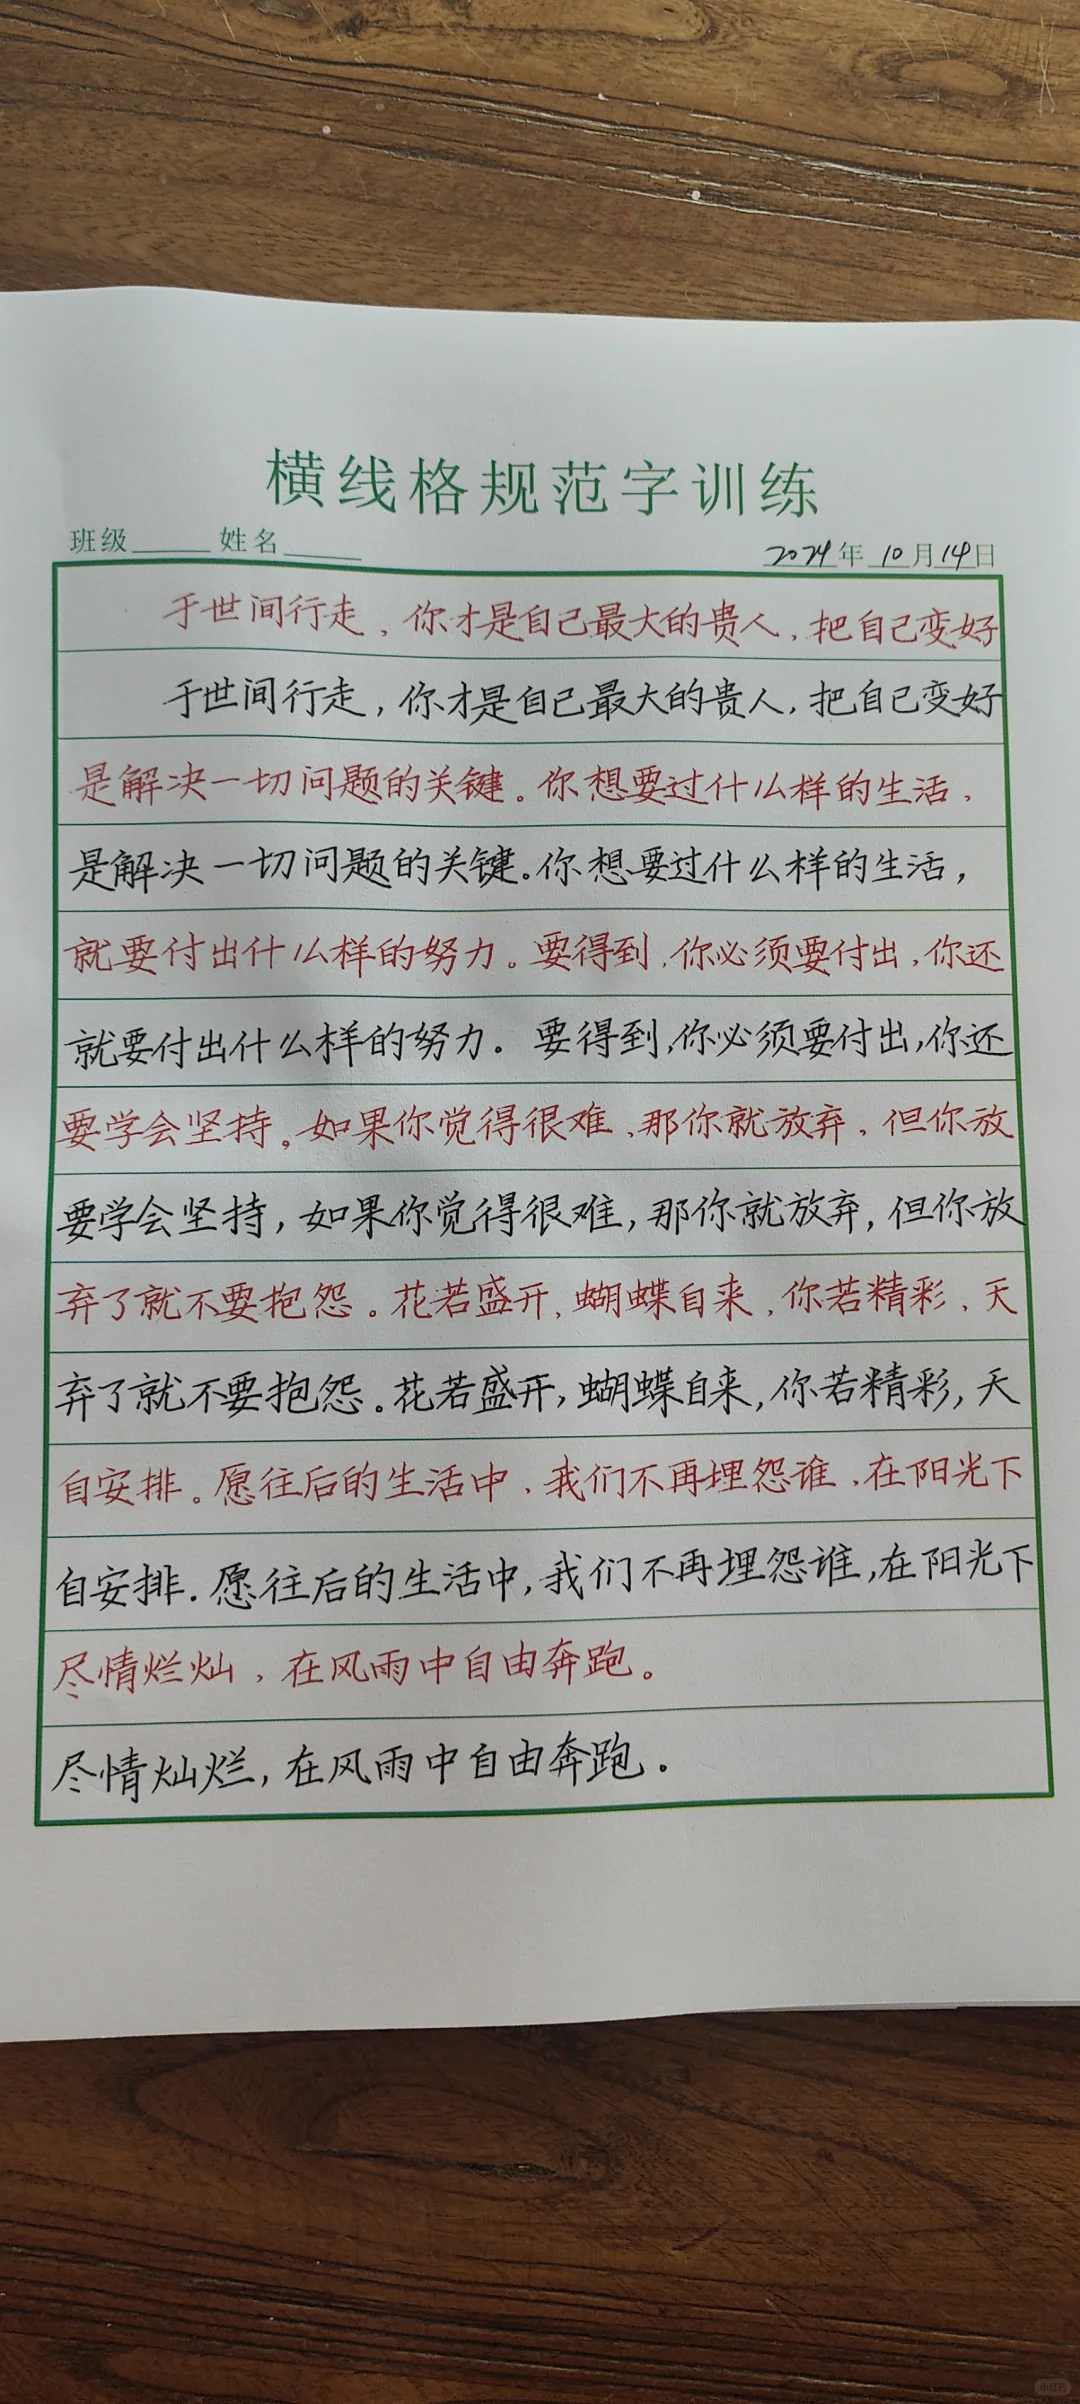 横线格规范字训练
班级 姓名 2024年10月14日
于世间行走，你才是自己最大的贵人，把自己变好
于世间行走，你才是自己最大的贵人，把自己变好
是解决一切问题的关键。你想要过什么样的生活，
是解决一切问题的关键。你想要过什么样的生活，
就要付出什么样的努力。要得到，你必须要付出，你还
就要付出什么样的努力。要得到，你必须要付出，你还
要学会坚持。如果你觉得很难，那你就放弃，但你放
要学会坚持，如果你觉得很难，那你就放弃，但你放
弃了就不要抱怨。花若盛开，蝴蝶自来，你若精彩，天
弃了就不要抱怨。花若盛开，蝴蝶自来，你若精彩，天
自安排。愿往后的生活中，我们不再埋怨谁，在阳光下
自安排.愿往后的生活中，我们不再埋怨谁，在阳光下
尽情烂灿，在风雨中自由奔跑。
尽情灿烂，在风雨中自由奔跑.
小红书